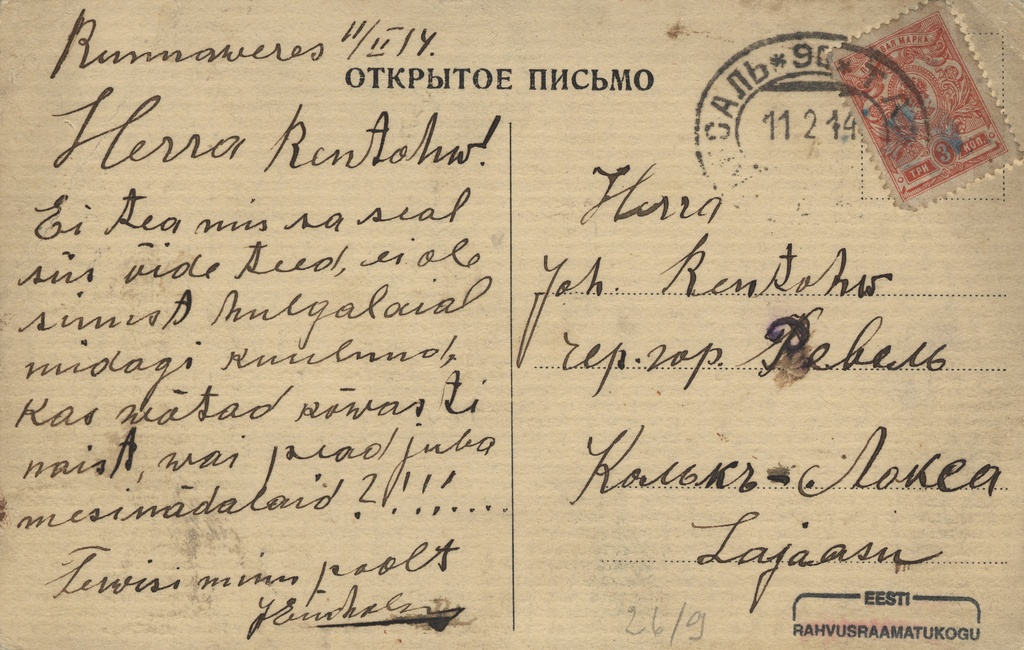 Runnaweres 11/II 14.
ОТКРЫТОЕ ПИСЬМО
Herra Rentohw!
Ei tea mis sa seal
siis õide teed, ei ole
sinust hulgalaial
midagi kuulnud,
Kas wõtad kõwasti
naist, wai pead juba
mesinädalaid?!!!.......
Terwisi minu poolt
САЛЬ * 90 *
11 2 14
ВАЯ МАРКА
ТРИ 3 КОП.
Herra
Joh. Rentohw
чер. гор. Ревель
Колькъ - Локса
Lajaasu
26/9
EESTI
RAHVUSRAAMATUKOGU